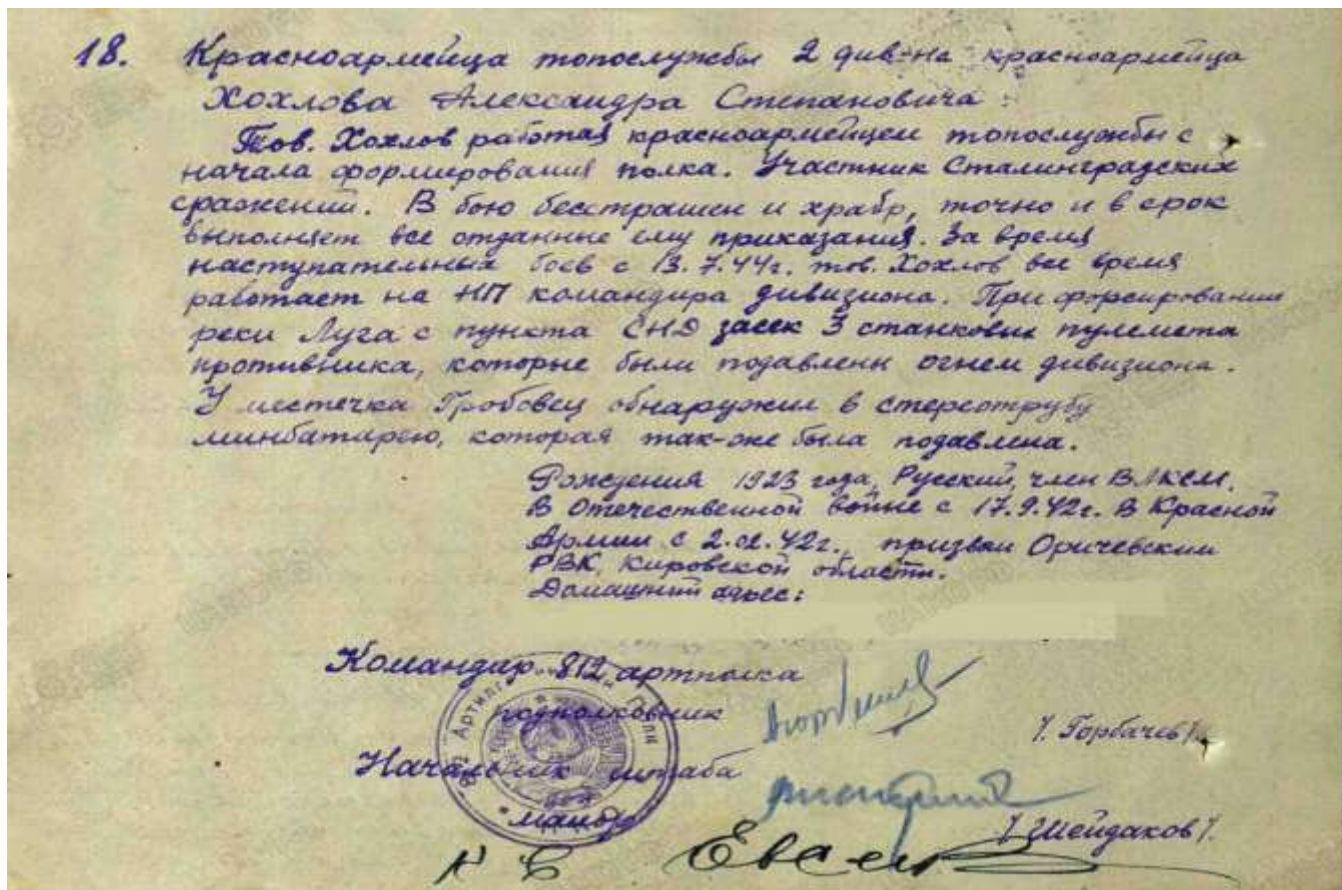 18. Красноармейца топослужбы 2 див-на красноармейца
Хохлова Александра Степановича:
Тов. Хохлов работая красноармейцем топослужбы с
начала формирования полка. Участник Сталинградских
сражений. В бою бесстрашен и храбр, точно и в срок
выполняет все отданные ему приказания. За время
наступательных боев с 13.7.44г. тов. Хохлов все время
работает на НП командира дивизиона. При форсировании
реки Луга с пункта СНД засек 3 станковых пулемета
противника, которые были подавлены огнем дивизиона.
У местечка Гробовец обнаружил в стереотрубу
минбатарею, которая так-же была подавлена.
Рождения 1923 года, Русский, член ВЛКСМ.
В Отечественной войне с 17.9.42г. В Красной
Армии с 2.02.42г., призван Оричевским
РВК, Кировской области.
Домашний адрес:
Командир 812 артполка
подполковник
/. Горбачев/.
Начальник штаба
майор
/. Шейдаков/.